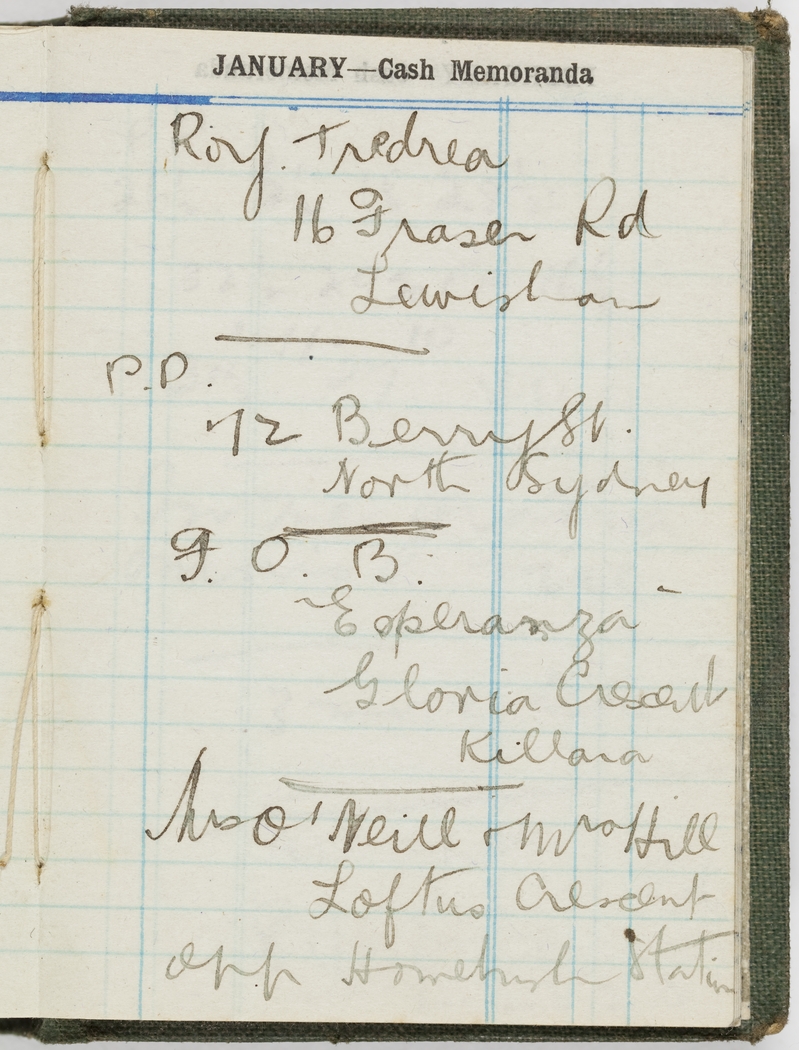 JANUARY—Cash Memoranda
Roy. Tredrea
16 Fraser Rd
Lewisham
P.P.
72 Berry St.
North Sydney
F. O. B.
"Esperanza"
Gloria Crescent
Killara
Mrs O'Neill & Mrs Hill
Loftus Crescent
opp Homebush Station